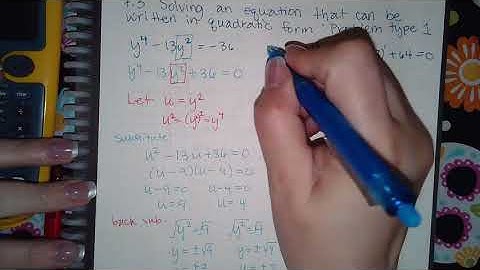 7.3 Solving an equation that can be
written in quadratic form: Problem type 1
y⁴ - 13y² = -36
y⁴ - 13y² + 36 = 0
+ 64 = 0
Let u = y²
u² = (y²)² = y⁴
substitute
u² - 13u + 36 = 0
(u - 9)(u - 4) = 0
u - 9 = 0 u - 4 = 0
u = 9 u = 4
back sub.
√y² = √9 √y² = √4
y = ±√9 y = ±√4